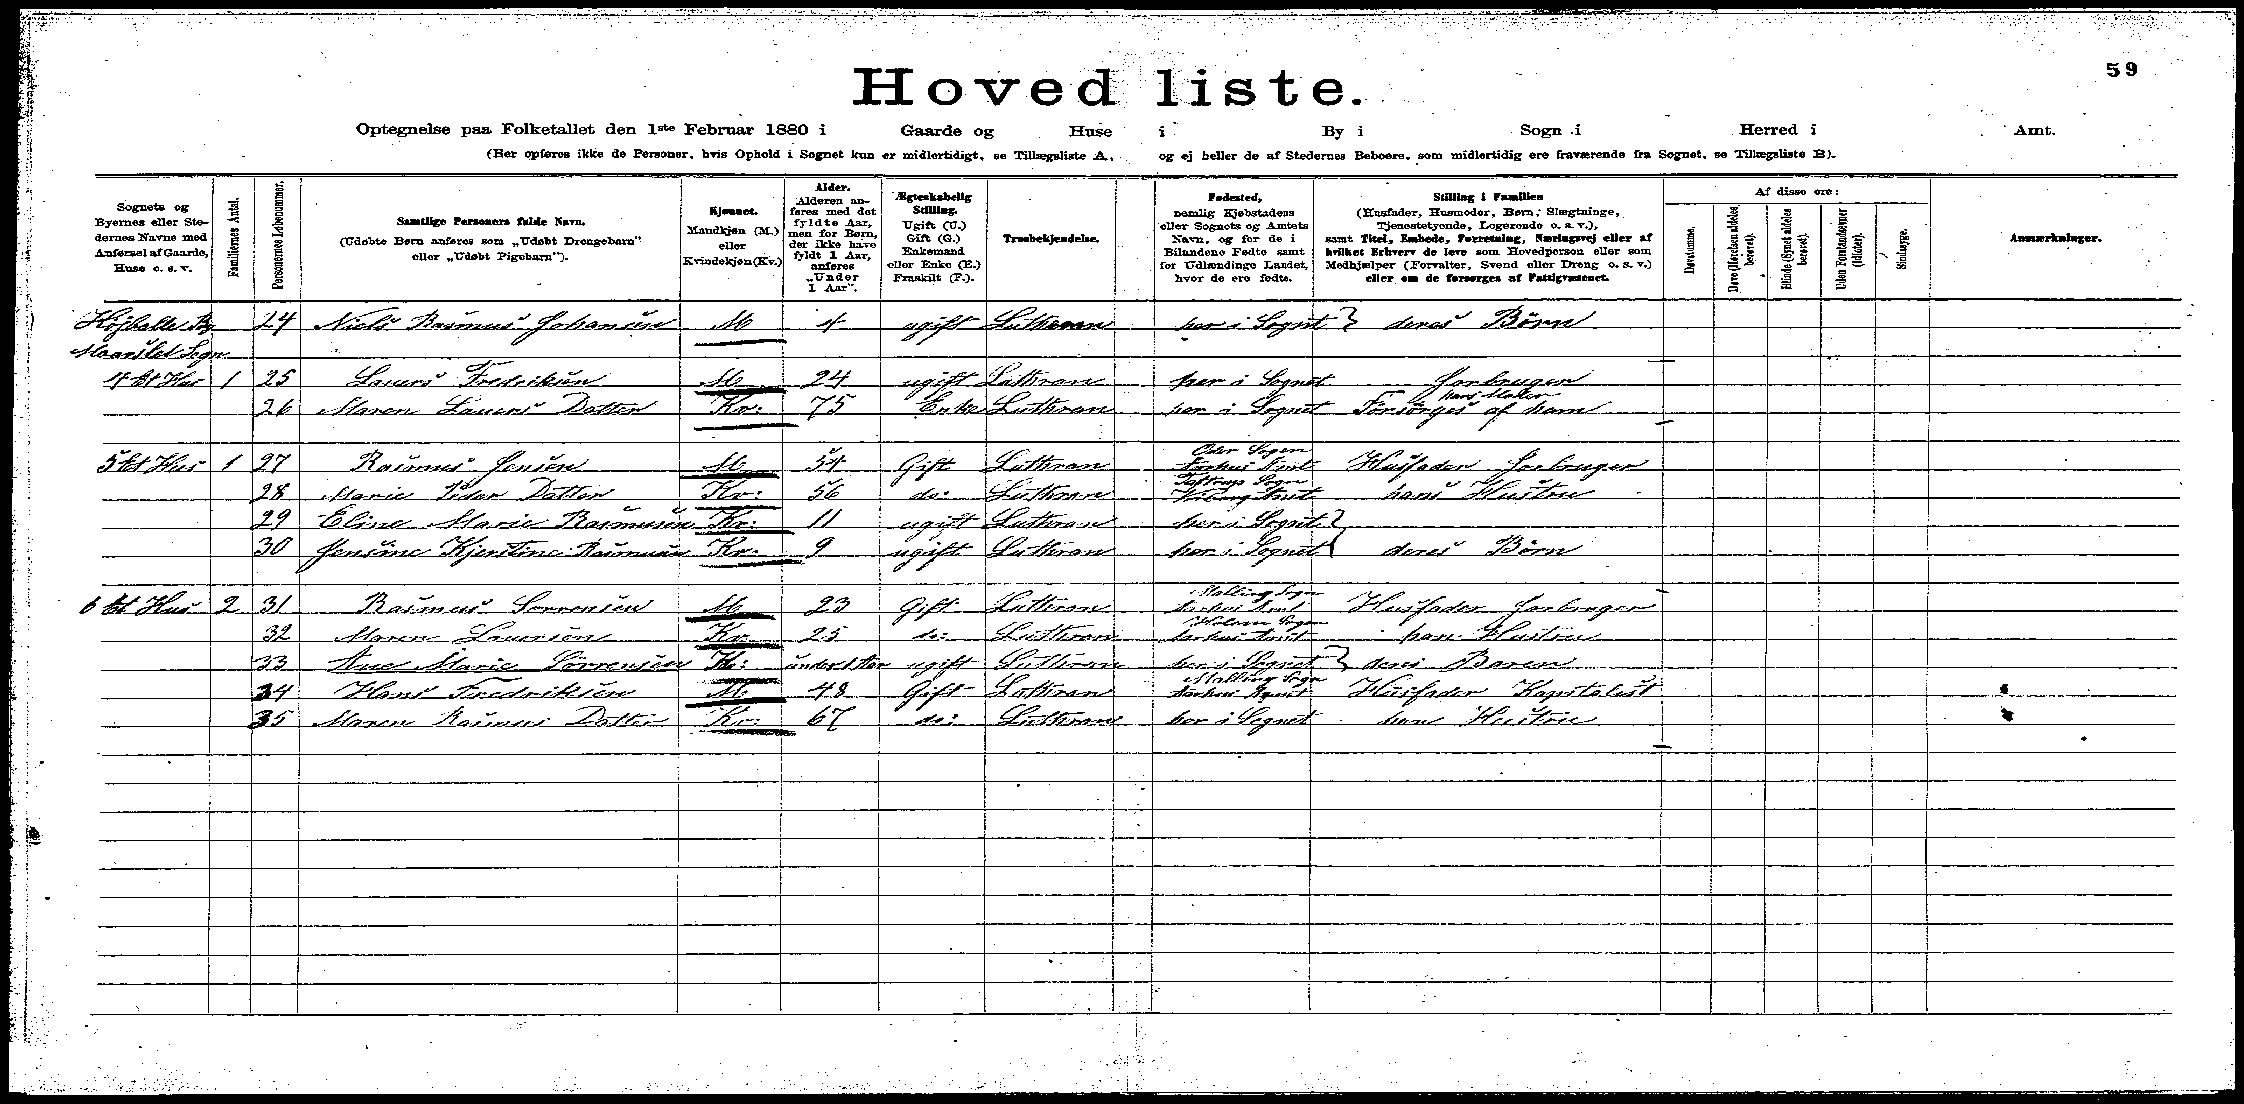 59
Hovedliste.
Optegnelse paa Folketallet den 1ste Februar 1880 i Gaarde og Huse i By i Sogn i Herred i Amt.
(Her opføres ikke de Personer, hvis Ophold i Sognet kun er midlertidigt, se Tillægsliste A, og ej heller de af Stedernes Beboere, som midlertidig ere fraværende fra Sognet, se Tillægsliste B).
Sognets og Byernes eller Stedernes Navne med Anførsel af Gaarde, Huse o. s. v.
Familiernes Antal.
Personernes Løbenummer.
Samtlige Personers fulde Navn.
(Udøbte Børn anføres som „Udøbt Drengebarn" eller „Udøbt Pigebarn").
Kjønnet.
Mandkjøn (M.) eller Kvindekjøn (Kv.)
Alder.
Alderen anføres med det fyldte Aar, men for Børn, der ikke have fyldt 1 Aar, anføres „Under 1 Aar".
Ægteskabelig Stilling.
Ugift (U.) Gift (G.) Enkemand eller Enke (E.) Fraskilt (F.).
Trosbekjendelse.
Fødested,
nemlig Kjøbstadens eller Sognets og Amtets Navn, og for de i Bilandene Fødte samt for Udlændinge Landet, hvor de ere fødte.
Stilling i Familien
(Husfader, Husmoder, Børn, Slægtninge, Tjenestetyende, Logerende o. s. v.),
samt Titel, Embede, Forretning, Næringsvej eller af hvilket Erhverv de leve som Hovedperson eller som Medhjælper (Forvalter, Svend eller Dreng o. s. v.) eller om de forsørges af Fattigvæsenet.
Af disse ere:
Døvstumme.
Døve (Hørelsen aldeles berøvet).
Blinde (Synet aldeles berøvet).
Uden Forstandsevner (Idioter).
Sindssyge.
Anmærkninger.
Højballe By 24 Niels Rasmus Johansen M 4 ugift Lutheran her i Sognet } deres Börn
Maarslet Sogn
4 et Hus 1 25 Laurs Fredriksen M 24 ugift Lutheran her i Sognet Jorbruger
hans Moder
26 Maren Laurs Datter Kv: 75 Enke Lutheran her i Sognet Forsörges af ham
Oder Sogen
5 et Hus 1 27 Rasmus Jensen M 54 Gift Lutheran Aarhus Amt Husfader Jorbruger
28 Marie Peder Datter Kv: 56 do: Lutheran hans Hustru
29 Eline Marie Rasmusen Kv: 11 ugift Lutheran her i Sognet }
30 Jensine Kjerstine Rasmusen Kv: 9 ugift Lutheran her i Sognet deres Börn
Malling Sogn
6 et Hus 2 31 Rasmus Sörrensen M 23 Gift Lutheran Aarhus Amt Husfader Jorbruger
Holme Sogn
32 Maren Laursen Kv 25 do: Lutheran Aarhus Amt hans Hustru
33 Ane Marie Sörrensen Kv: under 1 Aar ugift Lutheran her i Sognet } deres Baren
Malling Sogn
34 Hans Fredriksen M 48 Gift Lutheran Aarhus Amt Husfader Kapitalist
35 Maren Rasmus Datter Kv: 67 do: Lutheran her i Sognet hans Hustru